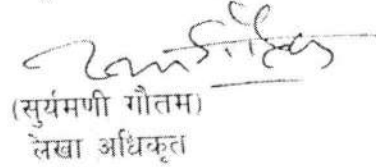 (सुर्यमणी गौतम)
लेखा अधिकृत